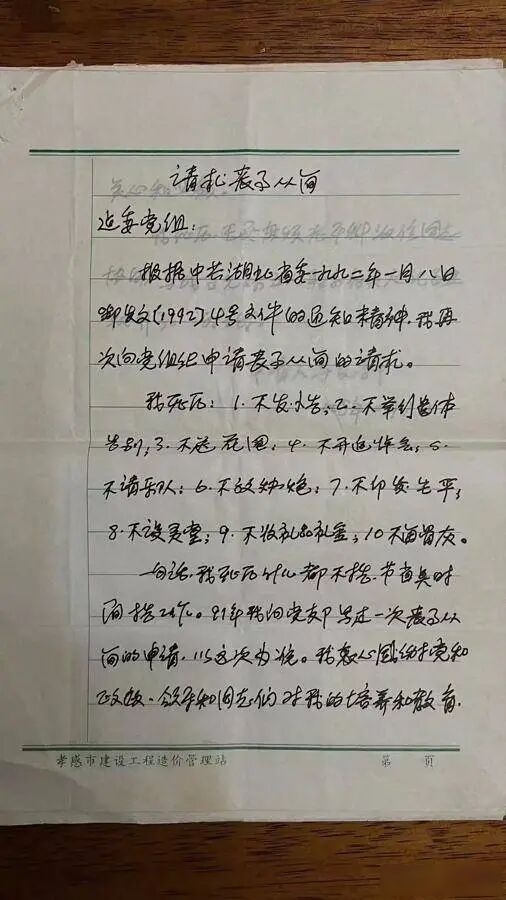 请求丧事从简
建委党组:
根据中共湖北省委一九九二年一月八日
鄂发文(1992)4号文件的通知精神,我再
次向党组织申请丧事从简的请求。
我死后:1.不发讣告;2.不举行遗体
告别;3.不送花圈;4.不开追悼会;5.
不请乐队;6.不放炮;7.不印发生平;
8.不设灵堂;9.不收礼品礼金;10不留骨灰。
一句话,我死后什么都不搞.节省时
间搞工作。91年我向党支部写过一次丧事从
简的申请,以这次为准。我衷心感谢党和
政府、领导和同志们对我的培养和教育,
孝感市建设工程造价管理站
第 页